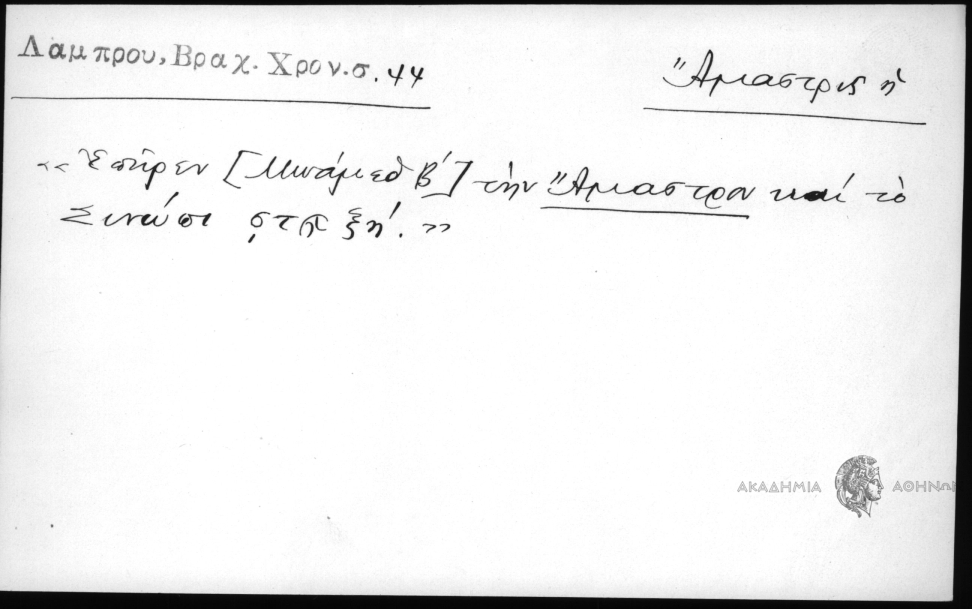 Λαμπρου, Βραχ. Χρον. σ. 44
Ἄμαστρις ἡ
«Ἐπῆρεν [Μωάμεθ Β΄] τὴν Ἄμαστρον καὶ τὸ
Σινώπι ͵ϛτϡξη΄.»
ΑΚΑΔΗΜΙΑ ΑΘΗΝΩΝ